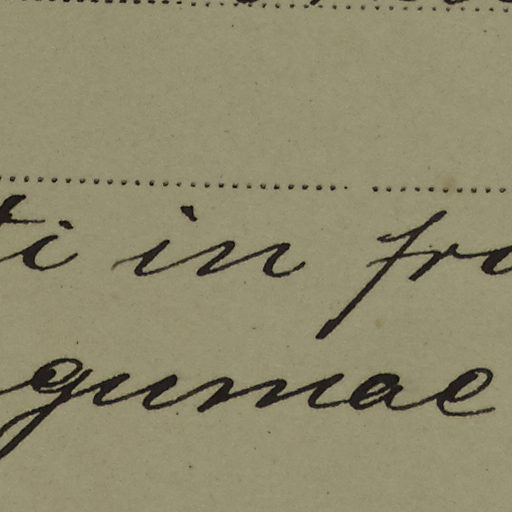 ti in fro
gumae